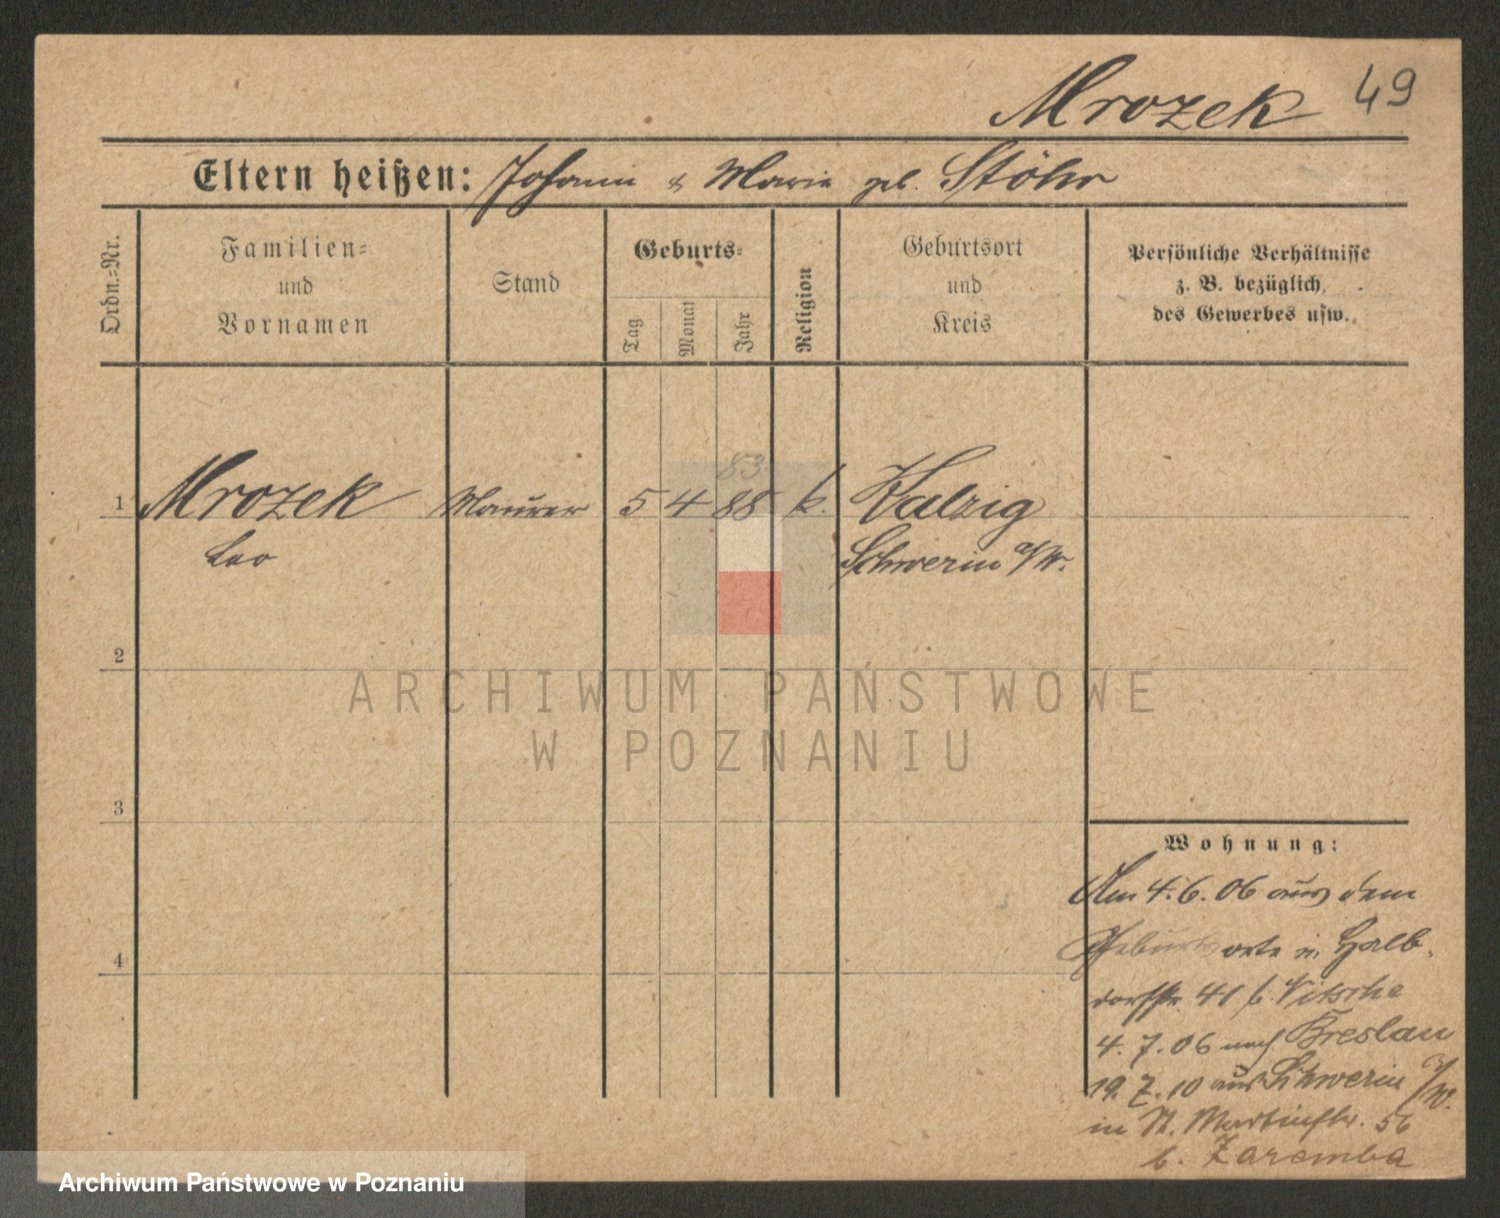 Mrozek 49
Eltern heißen: Johann & Marie geb. Stöhr
Ordn.=Nr.
Familien=
und
Vornamen
Stand
Geburts=
Tag
Monat
Jahr
Religion
Geburtsort
und
Kreis
Persönliche Verhältnisse
z. B. bezüglich
des Gewerbes usw.
83
1 Mrozek Maurer 5 4 88 k. Kalzig
Leo Schwerin a/W.
2
ARCHIWUM PAŃSTWOWE
W POZNANIU
3
4
Wohnung:
Am 4.6.06 aus dem
Geburtsorte in Halb-
dorfstr. 41 b. Nitsche
4.7.06 nach Breslau
19.7.10 aus Schwerin a/W.
in St. Martinstr. 56
b. Zaremba
Archiwum Państwowe w Poznaniu